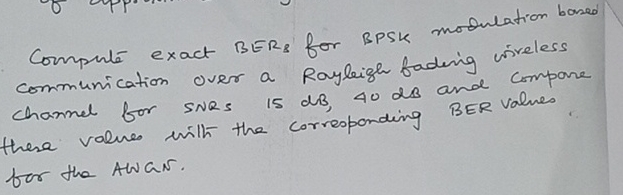 Compute exact BERs for BPSK modulation based
communication over a Rayleigh fading wireless
channel for SNRs 15 dB, 40 dB and compare
these values with the corresponding BER values
for the AWGN.